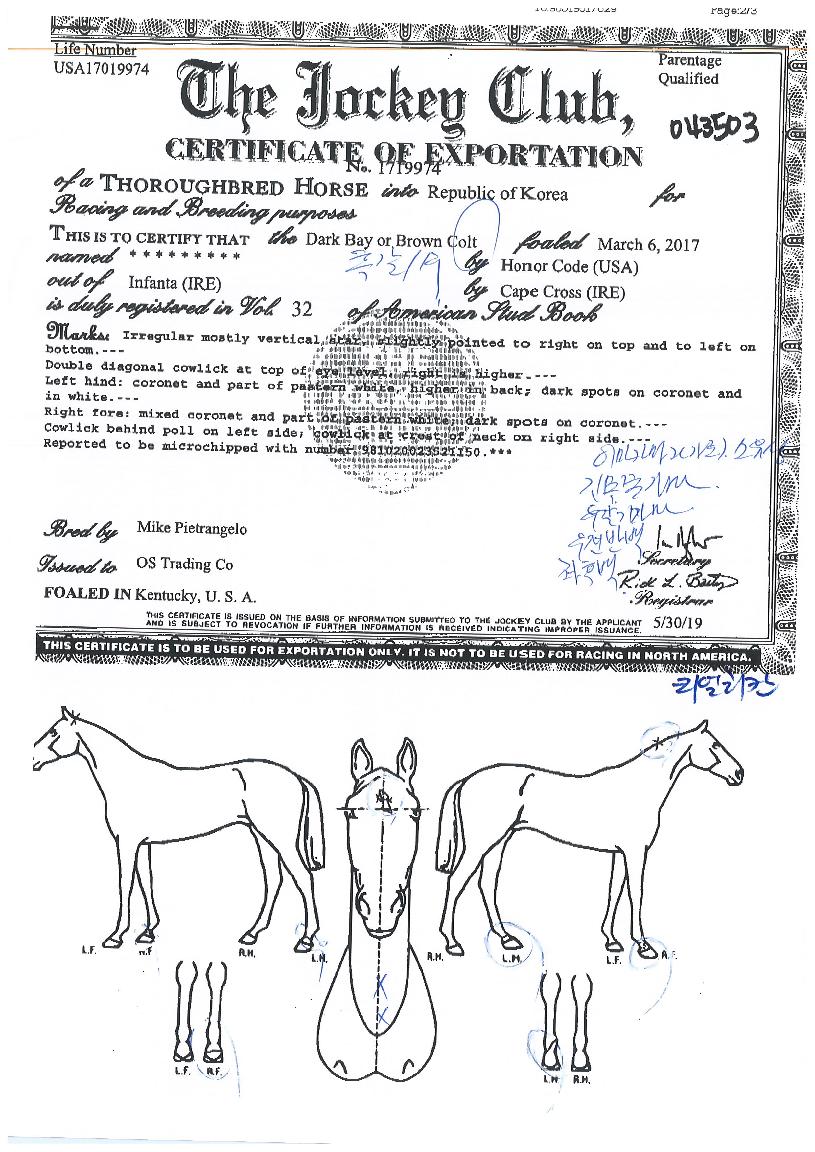 Page:2/3
Life Number
USA17019974
Parentage
Qualified
The Jockey Club,
043503
CERTIFICATE OF EXPORTATION
No. 1719974
of a THOROUGHBRED HORSE into Republic of Korea for
Racing and Breeding purposes
THIS IS TO CERTIFY THAT the Dark Bay or Brown Colt foaled March 6, 2017
named * * * * * * * * * by Honor Code (USA)
out of Infanta (IRE) by Cape Cross (IRE)
is duly registered in Vol. 32 of American Stud Book
Marks: Irregular mostly vertical star, slightly pointed to right on top and to left on
bottom.---
Double diagonal cowlick at top of eye level, right is higher.---
Left hind: coronet and part of pastern white, higher in back; dark spots on coronet and
in white.---
Right fore: mixed coronet and part of pastern white; dark spots on coronet.---
Cowlick behind poll on left side; cowlick at crest of neck on right side.---
Reported to be microchipped with number 981020023521150.***
Bred by Mike Pietrangelo
Issued to OS Trading Co
Secretary
Registrar
FOALED IN Kentucky, U. S. A.
THIS CERTIFICATE IS ISSUED ON THE BASIS OF INFORMATION SUBMITTED TO THE JOCKEY CLUB BY THE APPLICANT
AND IS SUBJECT TO REVOCATION IF FURTHER INFORMATION IS RECEIVED INDICATING IMPROPER ISSUANCE. 5/30/19
THIS CERTIFICATE IS TO BE USED FOR EXPORTATION ONLY. IT IS NOT TO BE USED FOR RACING IN NORTH AMERICA.
L.F. R.F. R.H. L.H. R.H. L.H. L.F. R.F.
L.F. R.F. L.H. R.H.